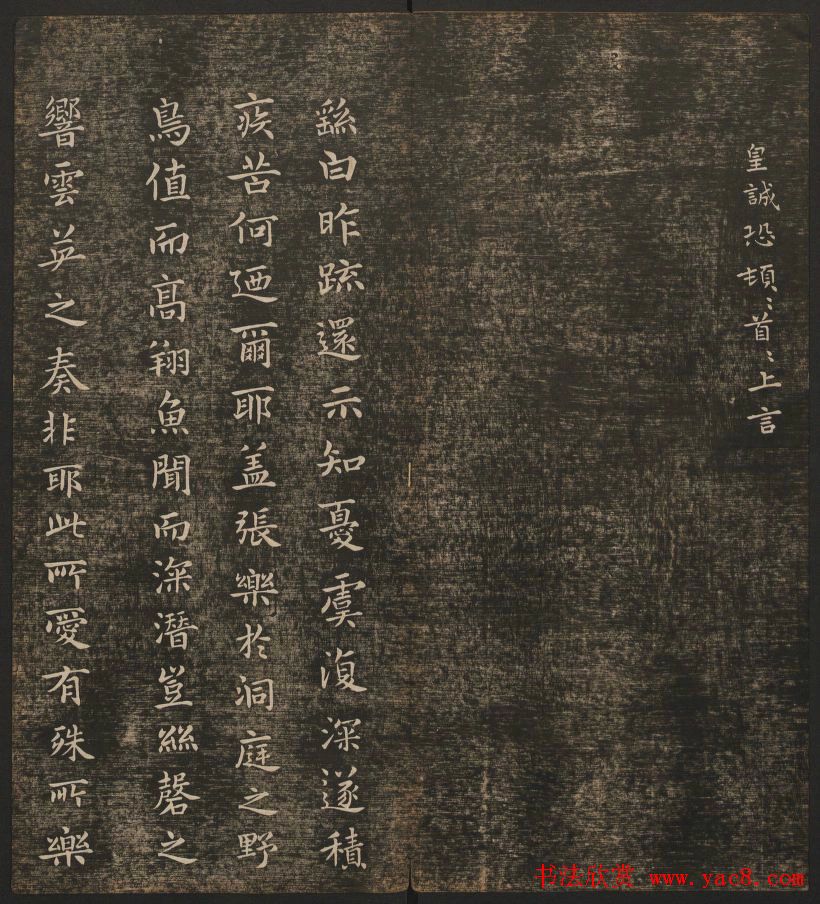 皇誠恐頓〻首〻上言
繇白昨疏還示知憂虞復深遂積
疾苦何廼爾耶盖張樂於洞庭之野
鳥值而高翔魚聞而深潛豈絲磬之
響雲英之奏非耶此所愛有殊所樂
书法欣赏 www.yac8.com